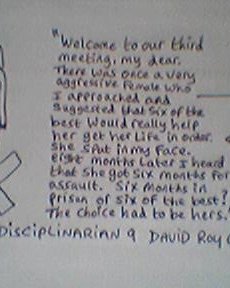 "Welcome to our third
meeting, my dear.
There was once a very
aggressive female who
I approached and
suggested that six of the
best would really help
her get her life in order.
She spat in my face.
eight months later I heard
that she got six months for
assault. Six months in
prison of six of the best?
The choice had to be hers."
DISCIPLINARIAN 9 DAVID ROY